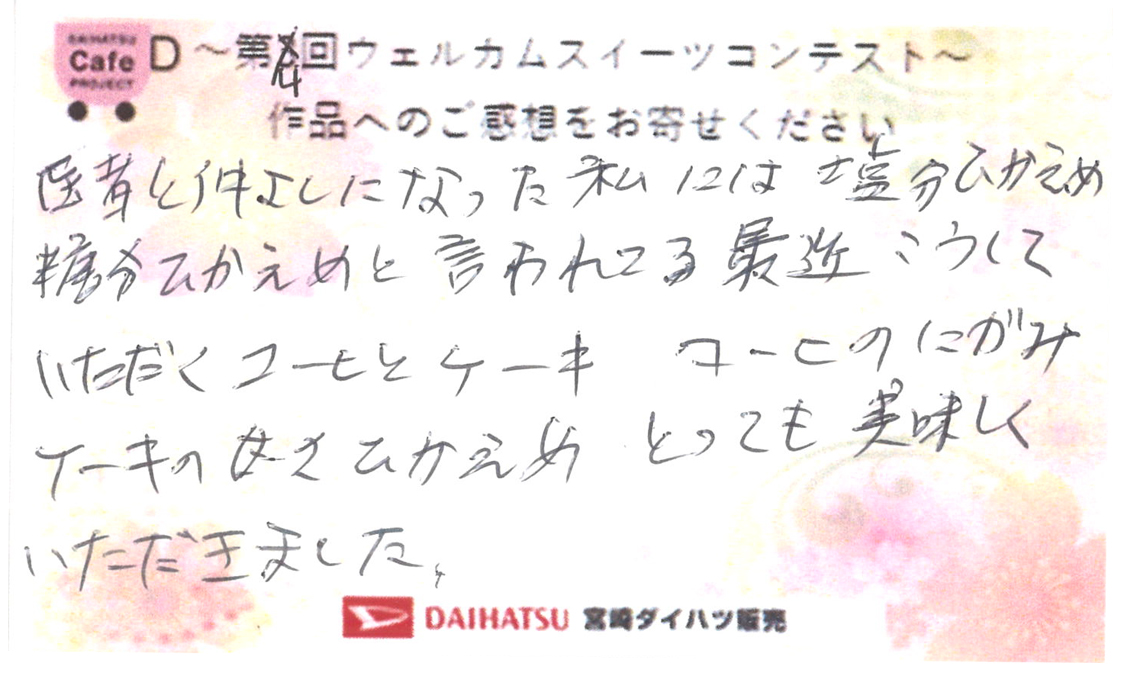 DAIHATSU
Cafe
PROJECT
D ～第4回ウェルカムスイーツコンテスト～
作品へのご感想をお寄せください
医者と仲よしになった私には塩分ひかえめ
糖分ひかえめと言われてる最近こうして
いただくコーヒとケーキ コーヒのにがみ
ケーキの甘さひかえめ とっても美味しく
いただきました。
DAIHATSU 宮崎ダイハツ販売